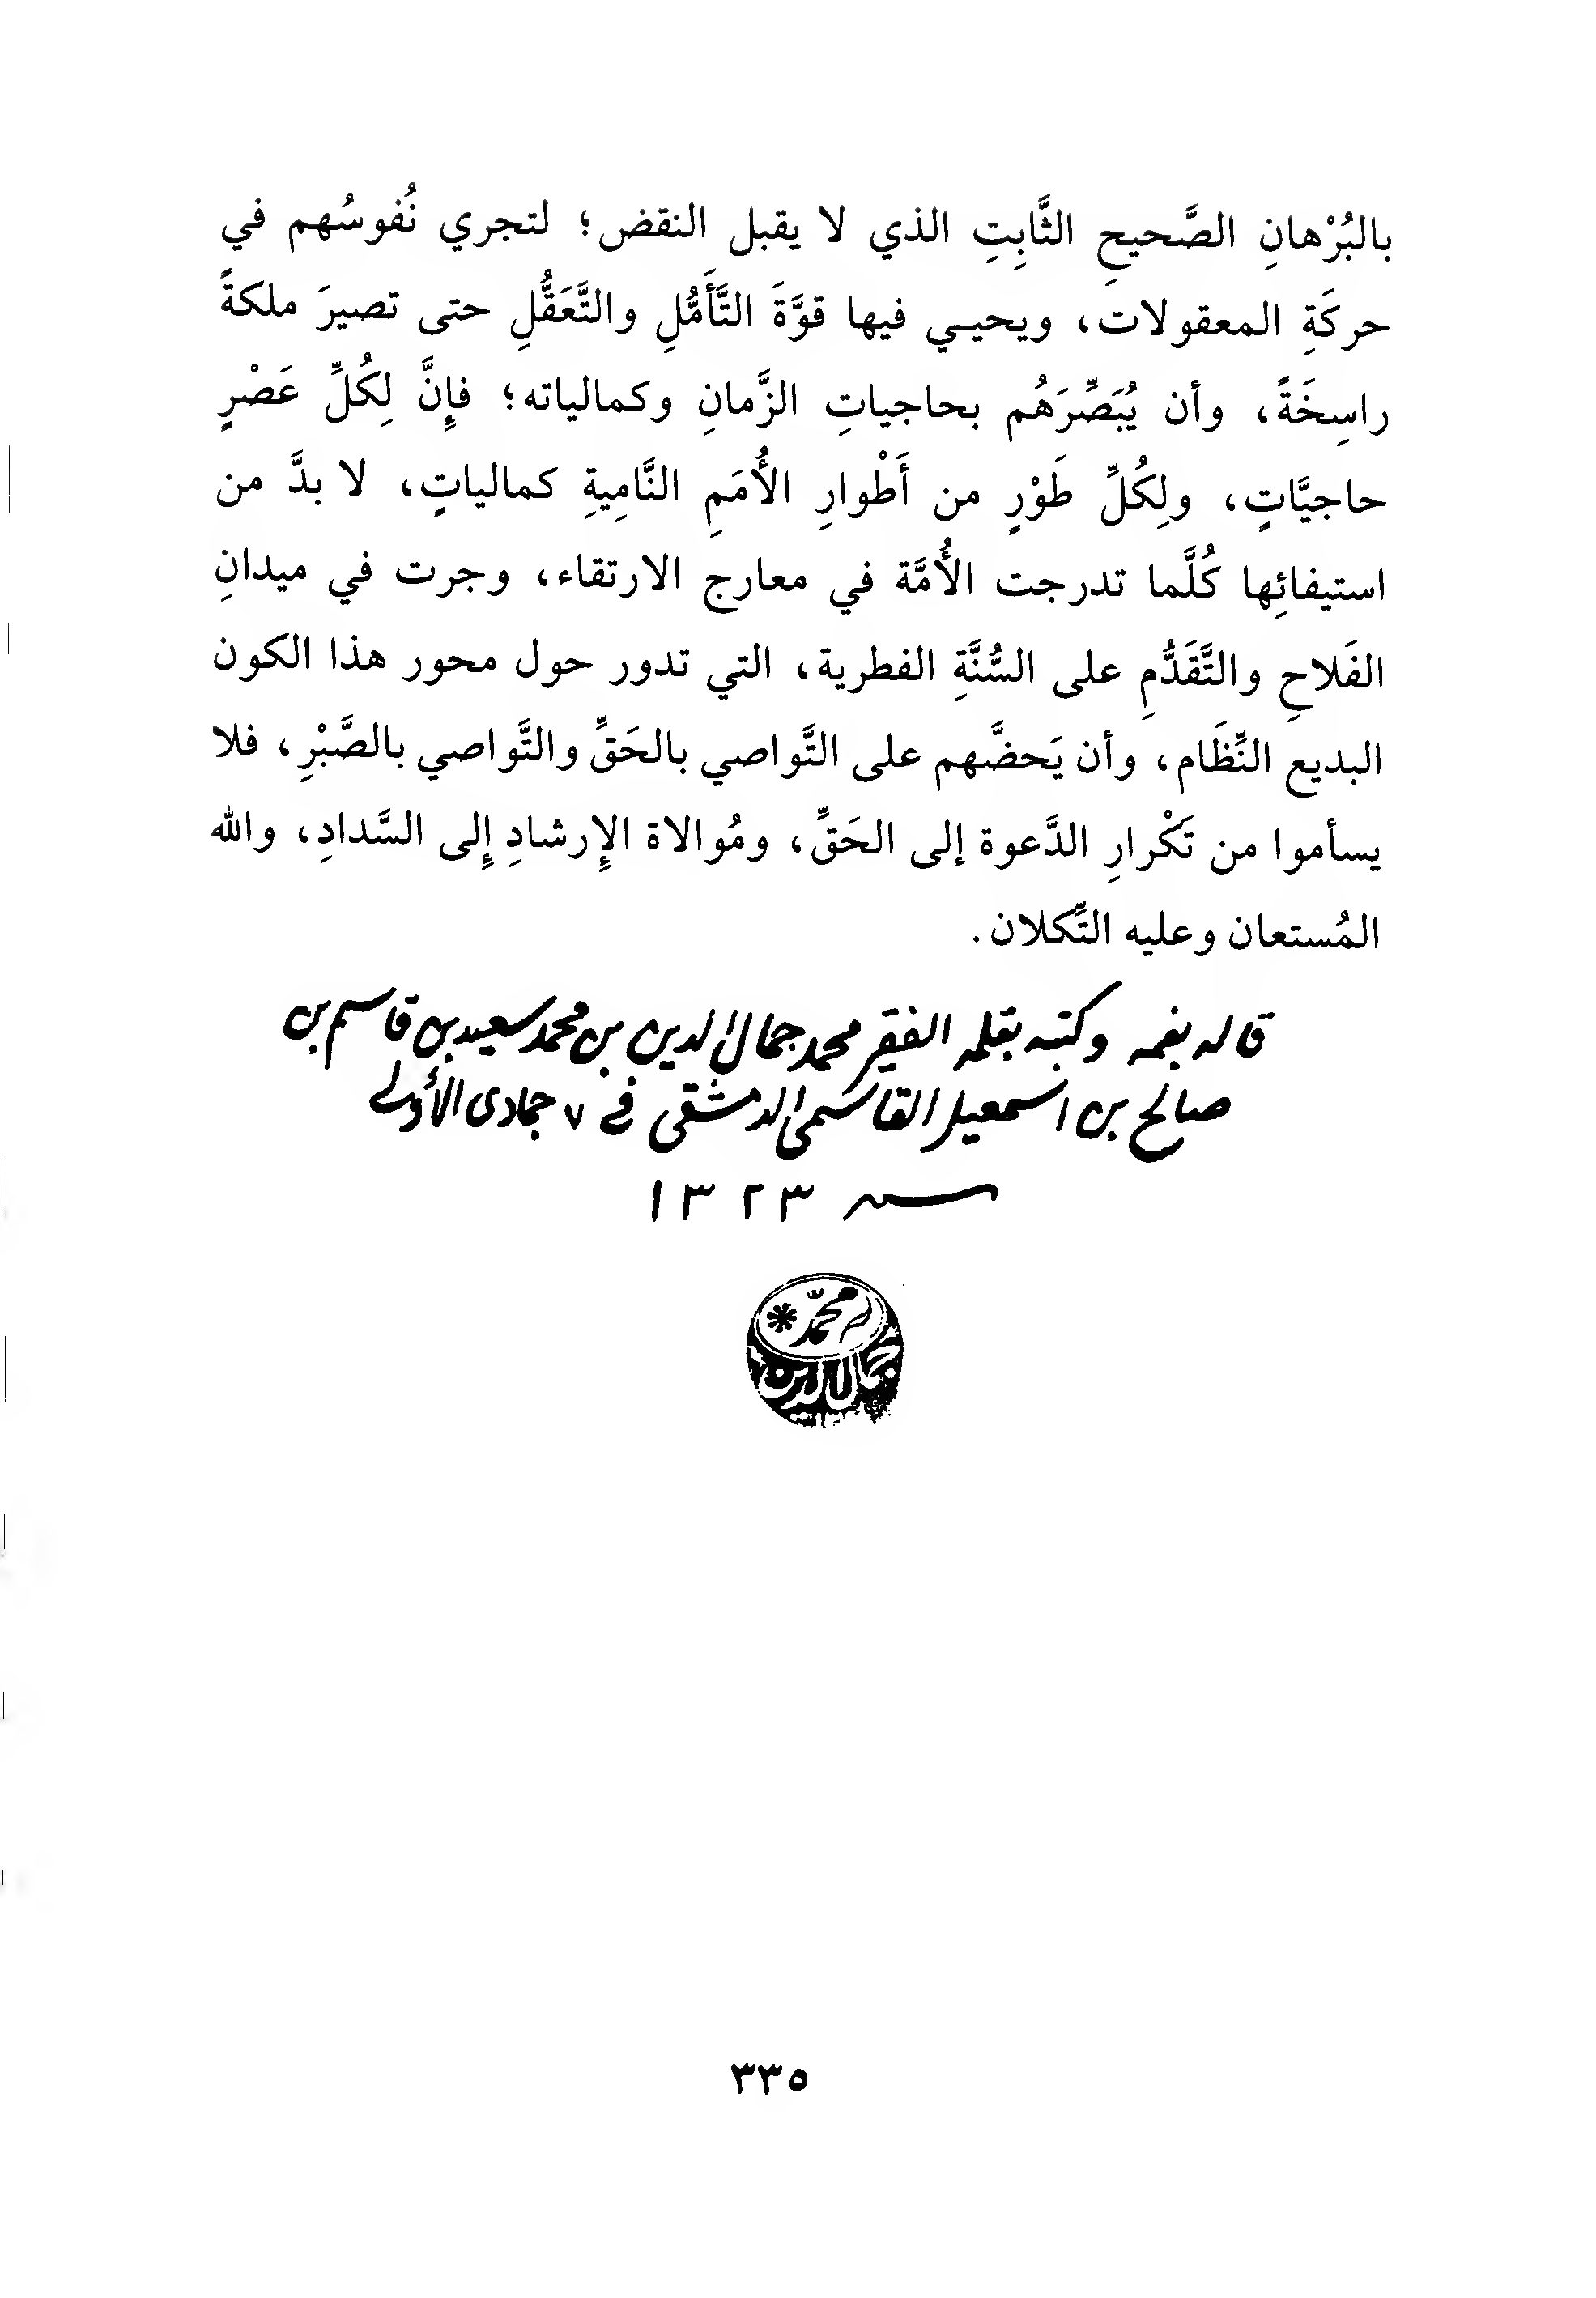 بالبُرْهانِ الصَّحيحِ الثَّابِتِ الذي لا يقبل النقض؛ لتجري نُفوسُهم في
حركَةِ المعقولات، ويحيـي فيها قوَّةَ التَّأَمُّلِ والتَّعَقُّلِ حتى تصيرَ ملكةً
راسِخَةً، وأن يُبَصِّرَهُم بحاجياتِ الزَّمانِ وكمالياته؛ فإِنَّ لِكُلِّ عَصْرٍ
حاجيَّاتٍ، ولِكُلِّ طَوْرٍ من أَطْوارِ الأُمَمِ النَّامِيةِ كمالياتٍ، لا بدَّ من
استيفائِها كُلَّما تدرجت الأُمَّة في معارج الارتقاء، وجرت في ميدانِ
الفَلاحِ والتَّقَدُّمِ على السُّنَّةِ الفطرية، التي تدور حول محور هذا الكون
البديع النِّظَام، وأن يَحضَّهم على التَّواصي بالحَقِّ والتَّواصي بالصَّبْرِ، فلا
يسأموا من تَكْرارِ الدَّعوة إلى الحَقِّ، ومُوالاة الإِرشادِ إِلى السَّدادِ، والله
المُستعان وعليه التِّكلان.
قاله بفمه وكتبه بقلمه الفقير محمد جمال الدين بن محمد سعيد بن قاسم بن
صالح بن اسمعيل القاسمي الدمشقي في ٧ جمادى الأولى
سنة ١٣٢٣
محمّد
جمال الدين
٣٣٥